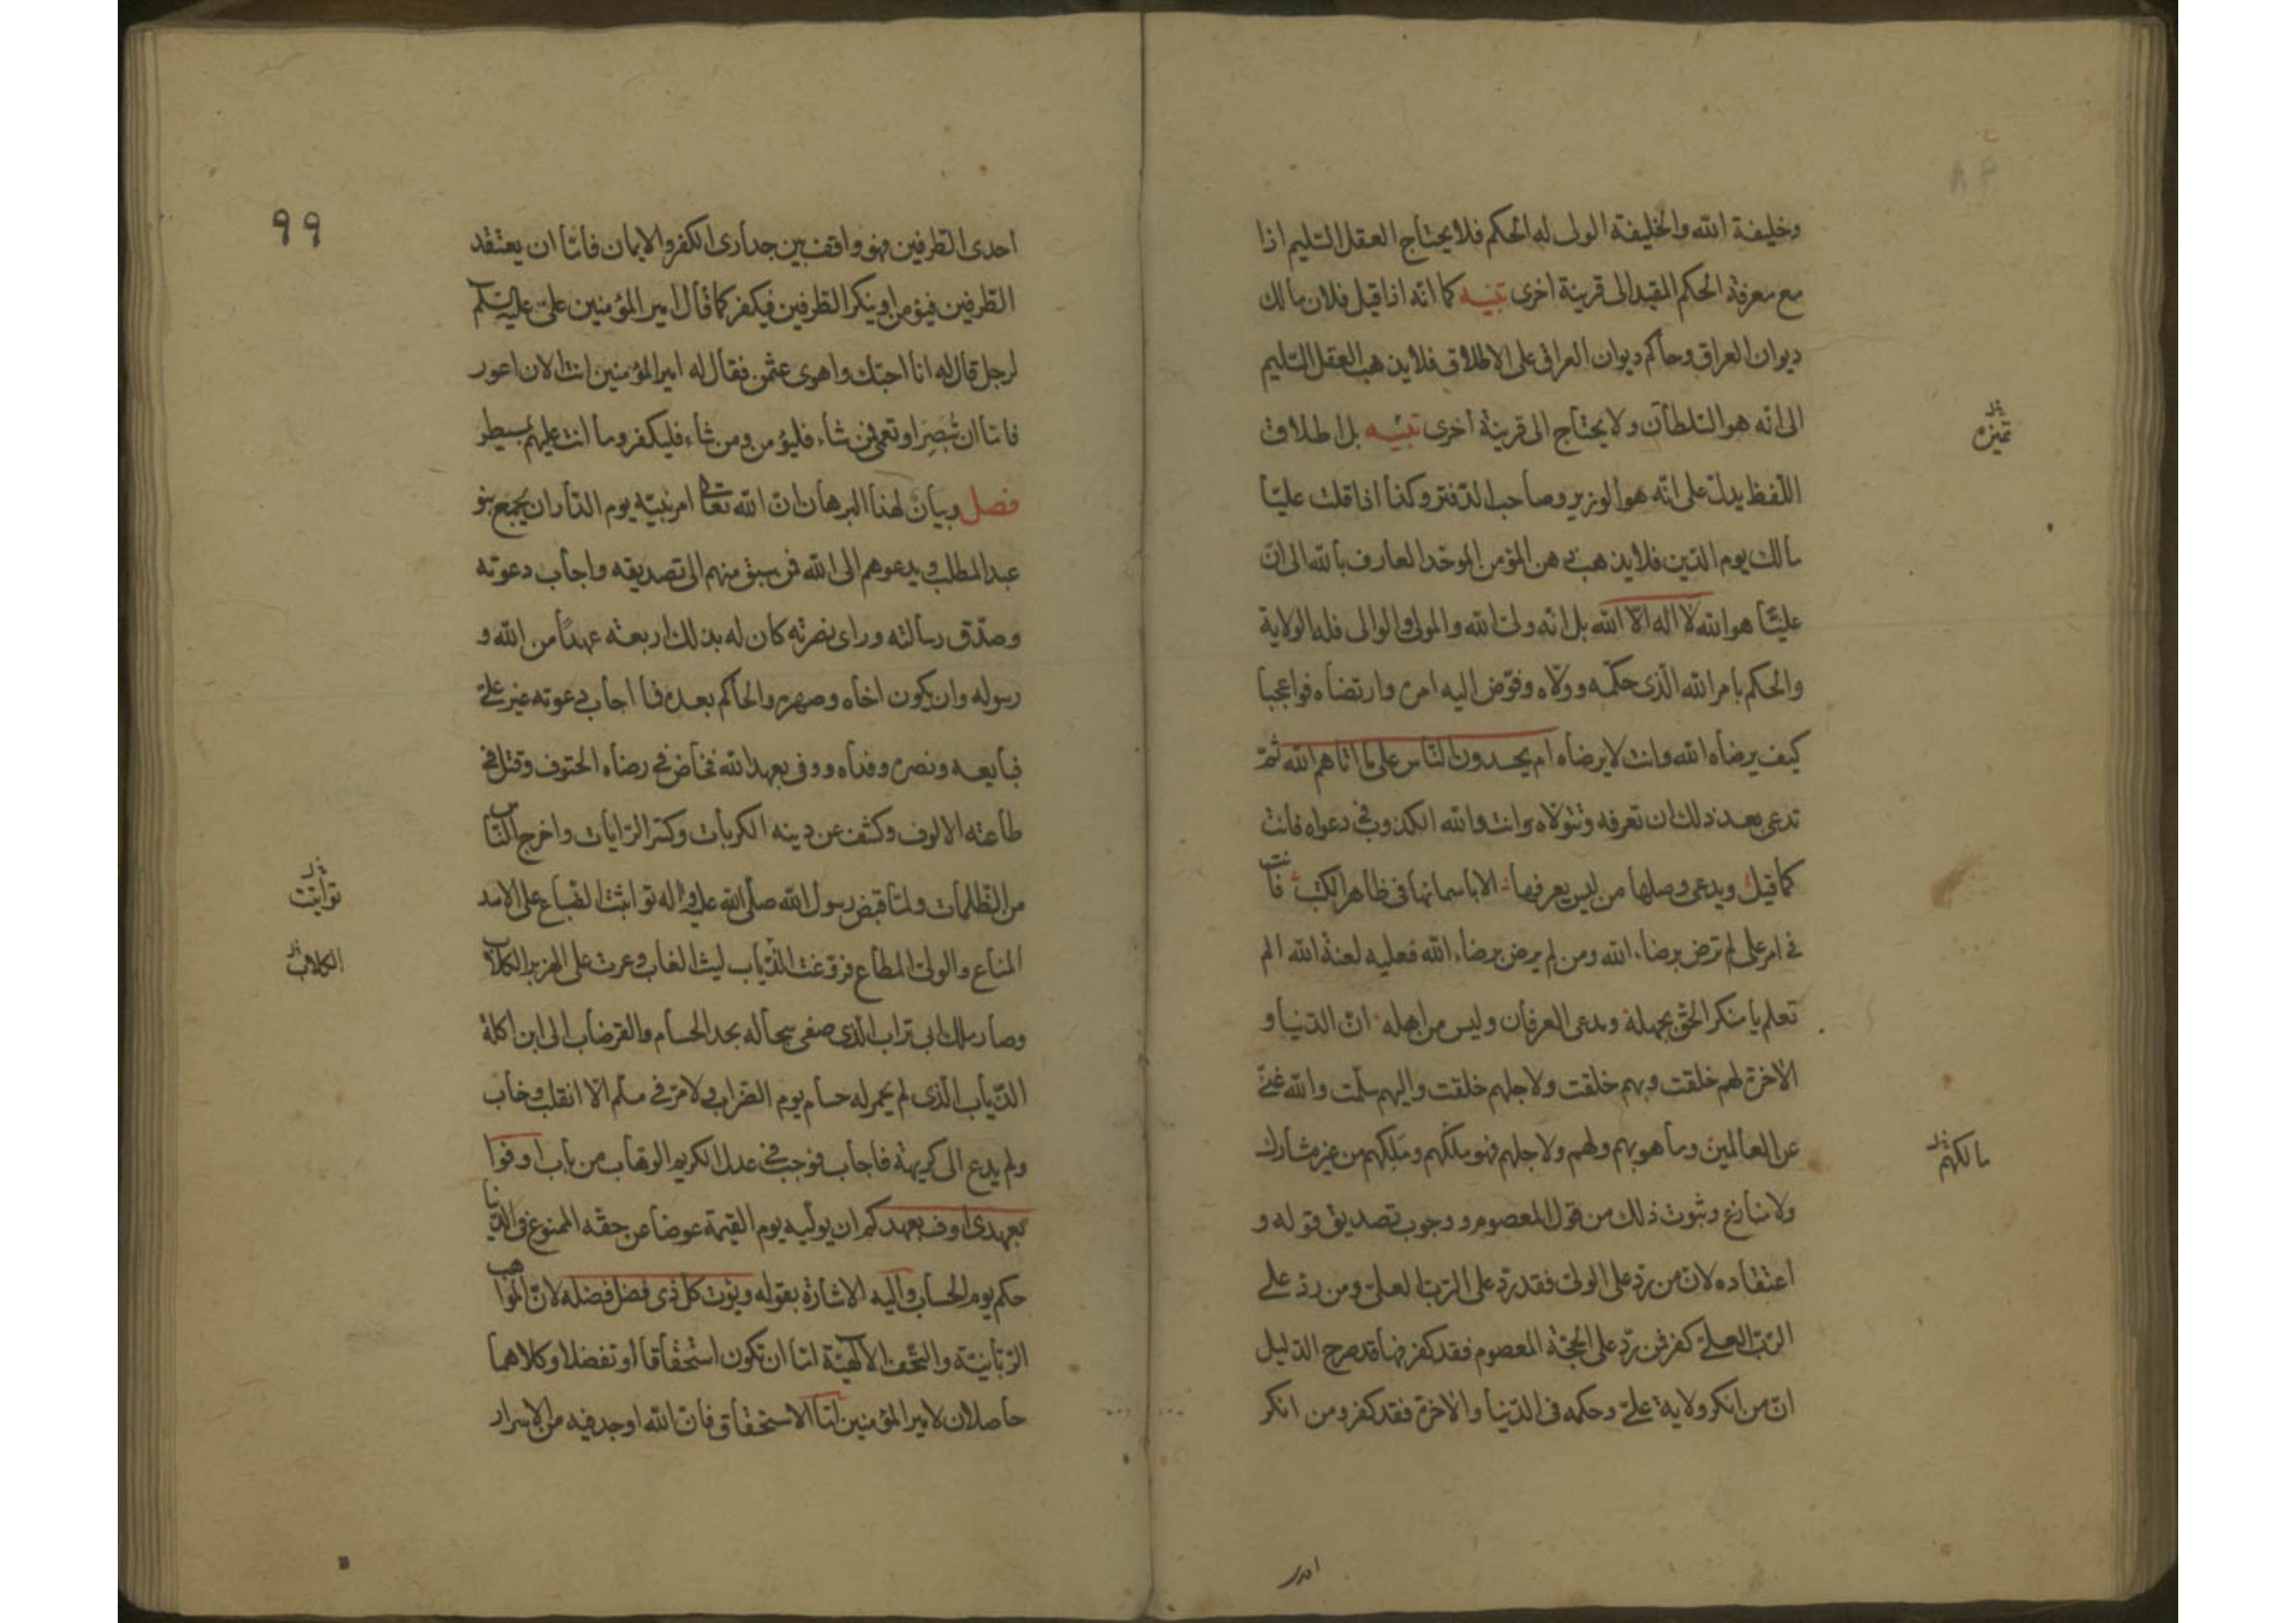 وخليفة الله والخليفة الولى له الحكم فلا يحتاج العقل السليم اذا
مع معرفة الحكم المقيد الى قرينة اخرى تنبيه كما انه اذا قيل فلان مالك
ديوان العراق وحاكم ديوان العراق على الاطلاق فلا يذهب العقل السليم
الى انه هو السلطان ولا يحتاج الى قرينة اخرى تنبيه بل اطلاق
تميزه
اللفظ يدل على انه هو الوزير وصاحب الدفتر وكذا اذا قلت عليا
مالك يوم الدين فلا يذهب ذهن المؤمن الموحد العارف بالله الى ان
عليا هو الله لا اله الا الله بل انه ولى الله والمولى والوالى فله الولاية
والحكم بامر الله الذى حكمه وولاه وفوض اليه امره وارتضاه فواعجبا
كيف يرضاه الله وانت لا يرضاه ام يحسدون الناس على ما اتاهم الله ثم
تدعى بعد ذلك ان تعرفه وتتولاه وانت والله الكذوب فى دعواه فانت
كما قيل ويدعى وصلها من ليس يعرفها الا باسمائها فى ظاهر الكتب فانت
فى امر على لم ترض برضاء الله ومن لم يرض برضاء الله فعليه لعنة الله الم
تعلم يا منكر الحق بجهله ومدعى العرفان وليس من اهله ان الدنيا و
الاخرة لهم خلقت وبهم خلقت ولاجلهم خلقت واليهم سلمت والله غنى
عن العالمين وما هو بهم ولهم ولاجلهم فهو ملكهم وملكهم من غير مشارك
مالكهم
ولا منازع وثبوت ذلك من قول المعصوم ووجوب تصديق قوله و
اعتقاده لان من رد على الولى فقد رد على الرب العلى ومن رد على
الرب العلى كفر فمن رد على الحجة المعصوم فقد كفر فها قد صرح الدليل
ان من انكر ولاية على وحكمه فى الدنيا والاخرة فقد كفر ومن انكر
احدى
٩٩
احدى الطرفين فهو واقف بين جدارى الكفر والايمان فاما ان يعتقد
الطرفين فيؤمن او ينكر الطرفين فيكفر كما قال امير المؤمنين على عليه السلم
لرجل قال له انا احبك واهوى عثمن فقال له امير المؤمنين انت الان اعور
فاما ان تبصر او تعمى فمن شاء فليؤمن ومن شاء فليكفر وما انت عليهم بمسيطر
فصل وبيان لهذا البرهان ان الله تعالى امر نبيه يوم الدار ان يجمع بنو
عبد المطلب ويدعوهم الى الله فمن سبق منهم الى تصديقه واجاب دعوته
وصدق رسالته وراى نصرته كان له بذلك اربعة عهدا من الله و
رسوله وان يكون اخاه وصهره والحاكم بعده فما اجاب دعوته غير على
فبايعه ونصره وفداه ووفى بعهد الله فخاض فى رضاه الحتوف وقتل فى
طاعته الالوف وكشف عن دينه الكربات وكسر الرايات واخرج الناس
من الظلمات ولما قبض رسول الله صلى الله عليه واله تواثبت الضباع على الاسد
تواثبت
المناع والولى المطاع فزوغت الذياب ليث الغاب وعرت على الهزبر الكلاب
الكلاب
وصار ملك ابى تراب الذى صفى سجاله بحد الحسام والقرضاب الى ابن اكلة
الذياب الذى لم يحمر له حسام يوم الضراب ولا مر فى مسلم الا انقلب وخاب
ولم يدع الى كريهة فاجاب فوجب فى عدل الكريم الوهاب من باب اوفوا
بعهدى اوف بعهدكم ان يوليه يوم القيمة عوضا عن حقه الممنوع فى الدنيا
حكم يوم الحساب واليه الاشارة بقوله ويؤت كل ذى فضل فضله لان المواهب
الربانية والتحف الالهية اما ان تكون استحقاقا او تفضلا وكلاهما
حاصلان لامير المؤمنين اما الاستحقاق فان الله اوجد فيه من الاسرار